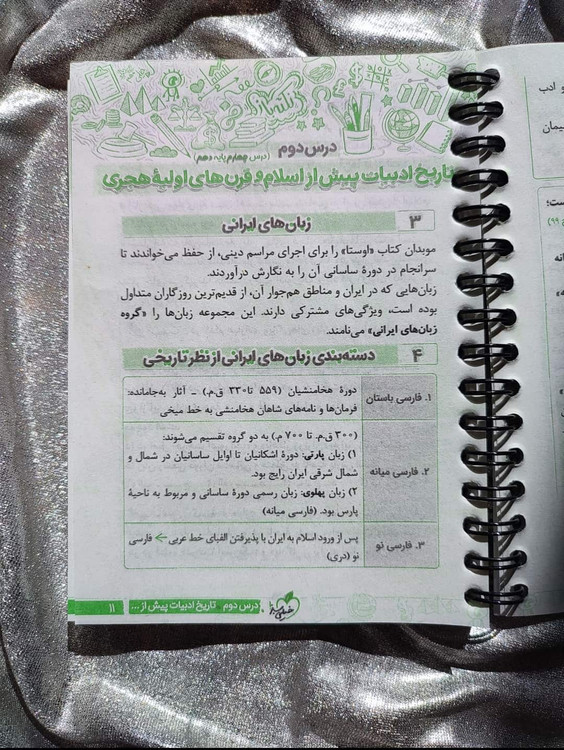 درس دوم
(درس چهارم پایه دهم)
تاریخ ادبیات پیش از اسلام و قرن‌های اولیهٔ هجری
۳ زبان‌های ایرانی
موبدان کتاب «اوستا» را برای اجرای مراسم دینی، از حفظ می‌خواندند تا
سرانجام در دورهٔ ساسانی آن را به نگارش درآوردند.
زبان‌هایی که در ایران و مناطق هم‌جوار آن، از قدیم‌ترین روزگاران متداول
بوده است، ویژگی‌های مشترکی دارند. این مجموعه زبان‌ها را «گروه
زبان‌های ایرانی» می‌نامند.
۴ دسته‌بندی زبان‌های ایرانی از نظر تاریخی
۱. فارسی باستان
دورهٔ هخامنشیان (۵۵۹ تا ۳۳۰ ق.م.) ـ آثار به‌جامانده:
فرمان‌ها و نامه‌های شاهان هخامنشی به خط میخی
۲. فارسی میانه
(۳۰۰ ق.م. تا ۷۰۰ م.) به دو گروه تقسیم می‌شوند:
۱) زبان پارتی: دورهٔ اشکانیان تا اوایل ساسانیان در شمال و
شمال شرقی ایران رایج بود.
۲) زبان پهلوی: زبان رسمی دورهٔ ساسانی و مربوط به ناحیهٔ
پارس بود. (فارسی میانه)
۳. فارسی نو
پس از ورود اسلام به ایران با پذیرفتن الفبای خط عربی ← فارسی
نو (دری)
درس دوم تاریخ ادبیات پیش از ... ۱۱
و ادب